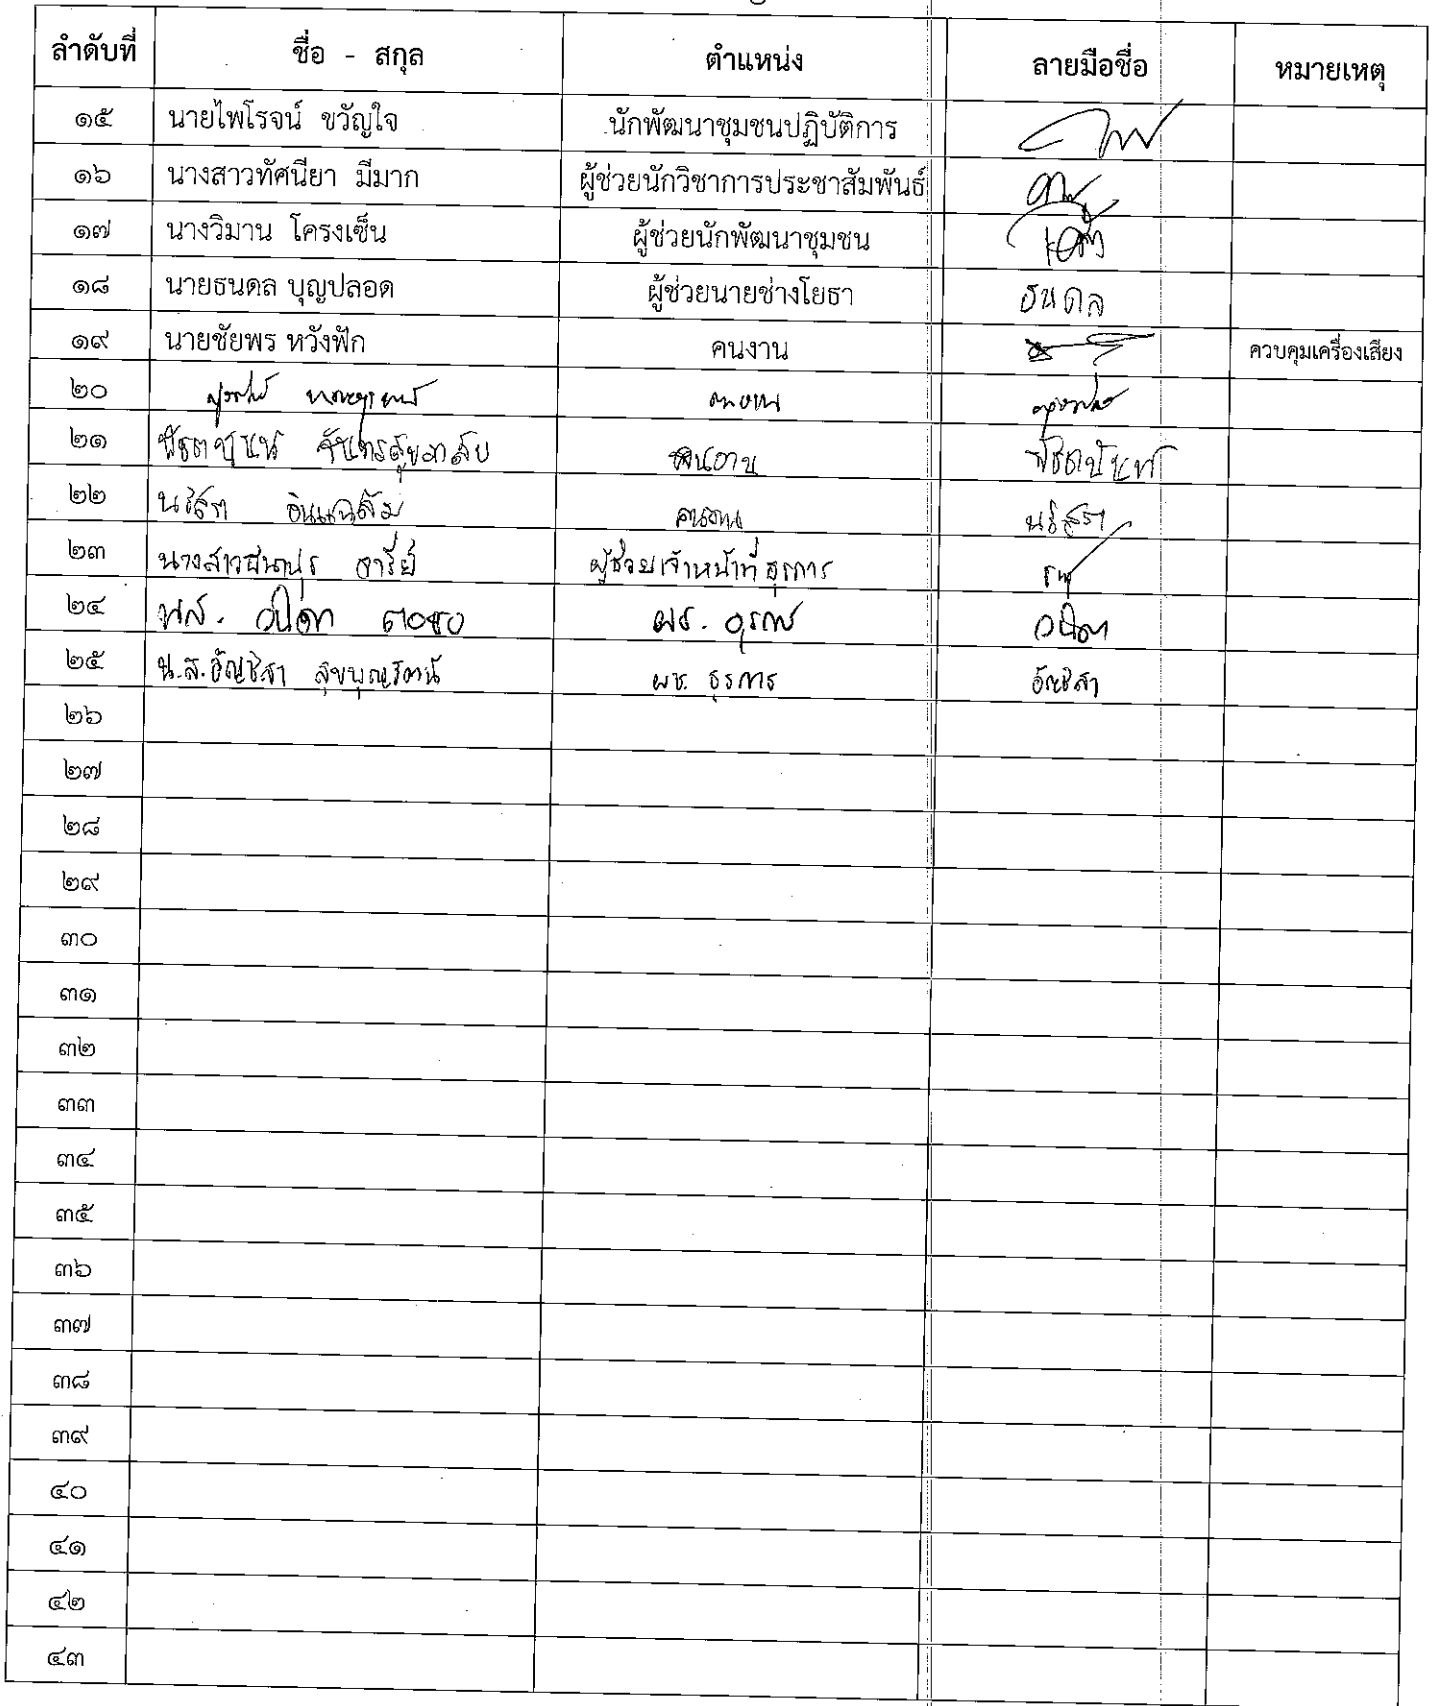 ลำดับที่ ชื่อ - สกุล ตำแหน่ง ลายมือชื่อ หมายเหตุ
๑๕ นายไพโรจน์ ขวัญใจ นักพัฒนาชุมชนปฏิบัติการ
๑๖ นางสาวทัศนียา มีมาก ผู้ช่วยนักวิชาการประชาสัมพันธ์
๑๗ นางวิมาน โครงเซ็น ผู้ช่วยนักพัฒนาชุมชน
๑๘ นายธนดล บุญปลอด ผู้ช่วยนายช่างโยธา ธนดล
๑๙ นายชัยพร หวังฟัก คนงาน ควบคุมเครื่องเสียง
๒๐ คนงาน
๒๑ คนงาน
๒๒ คนงาน
๒๓ นางสาว อารีย์ ผู้ช่วยเจ้าหน้าที่ธุรการ
๒๔ ผช. ธุรการ
๒๕ น.ส.อัญชิสา สุขบุญรัตน์ ผช. ธุรการ อัญชิสา
๒๖
๒๗
๒๘
๒๙
๓๐
๓๑
๓๒
๓๓
๓๔
๓๕
๓๖
๓๗
๓๘
๓๙
๔๐
๔๑
๔๒
๔๓